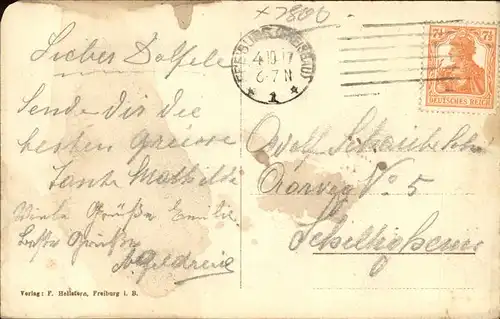 x 7800
FREIBURG (BREISGAU)
4.10.17
6-7 N
* 1 *
7½ 7½
DEUTSCHES REICH
Lieber Dolfele
Sende dir die
besten Grüsse
Tante Mathilde
Viele Grüße Emilie
Beste Grüße
Adolf
No 5
Verlag: F. Hellstern, Freiburg i. B.